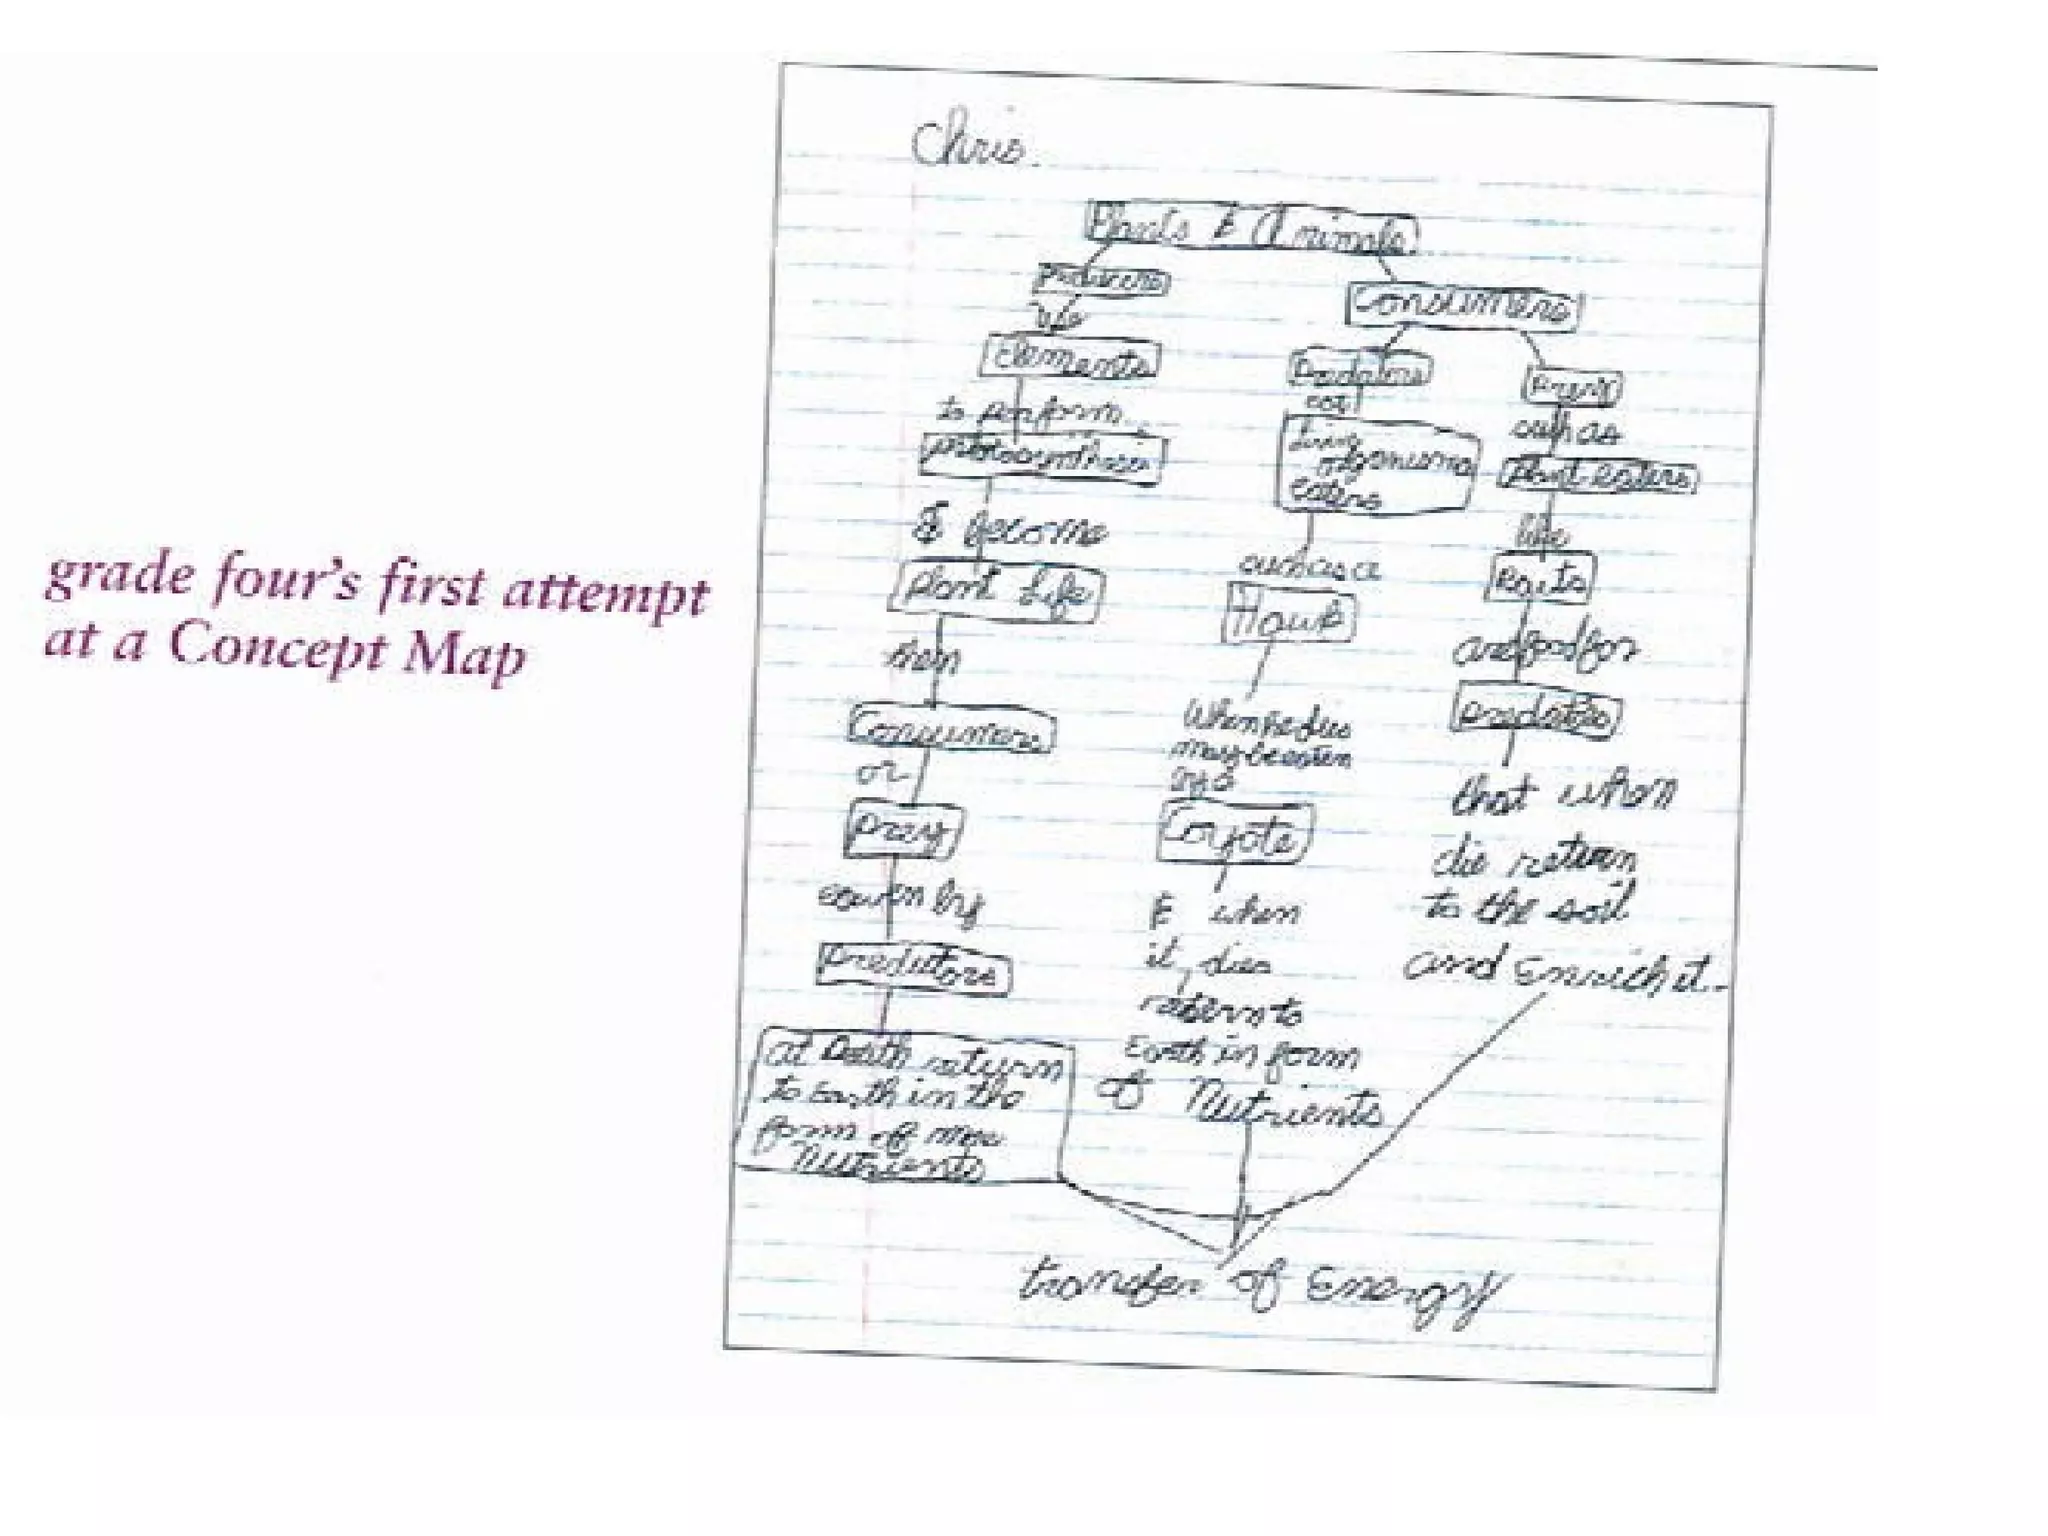 grade four's first attempt
at a Concept Map
Chris.
Plants & Animals
Producers
use
Elements
to perform
photosynthesis
& become
plant life
then
Consumers
or
prey
by
predutors
at Death return
to Earth in the
form of more
Nutrients
Consumers
Predators
eat
living
organisms
eaters
such as a
Hawk
When he dies
may be eaten
by a
Coyote
& when
it dies
returns to
Earth in form
of Nutrients
prey
such as
Plant eaters
like
are food for
predators
that when
die return
to the soil
and Enrich it.
transfer of Energy